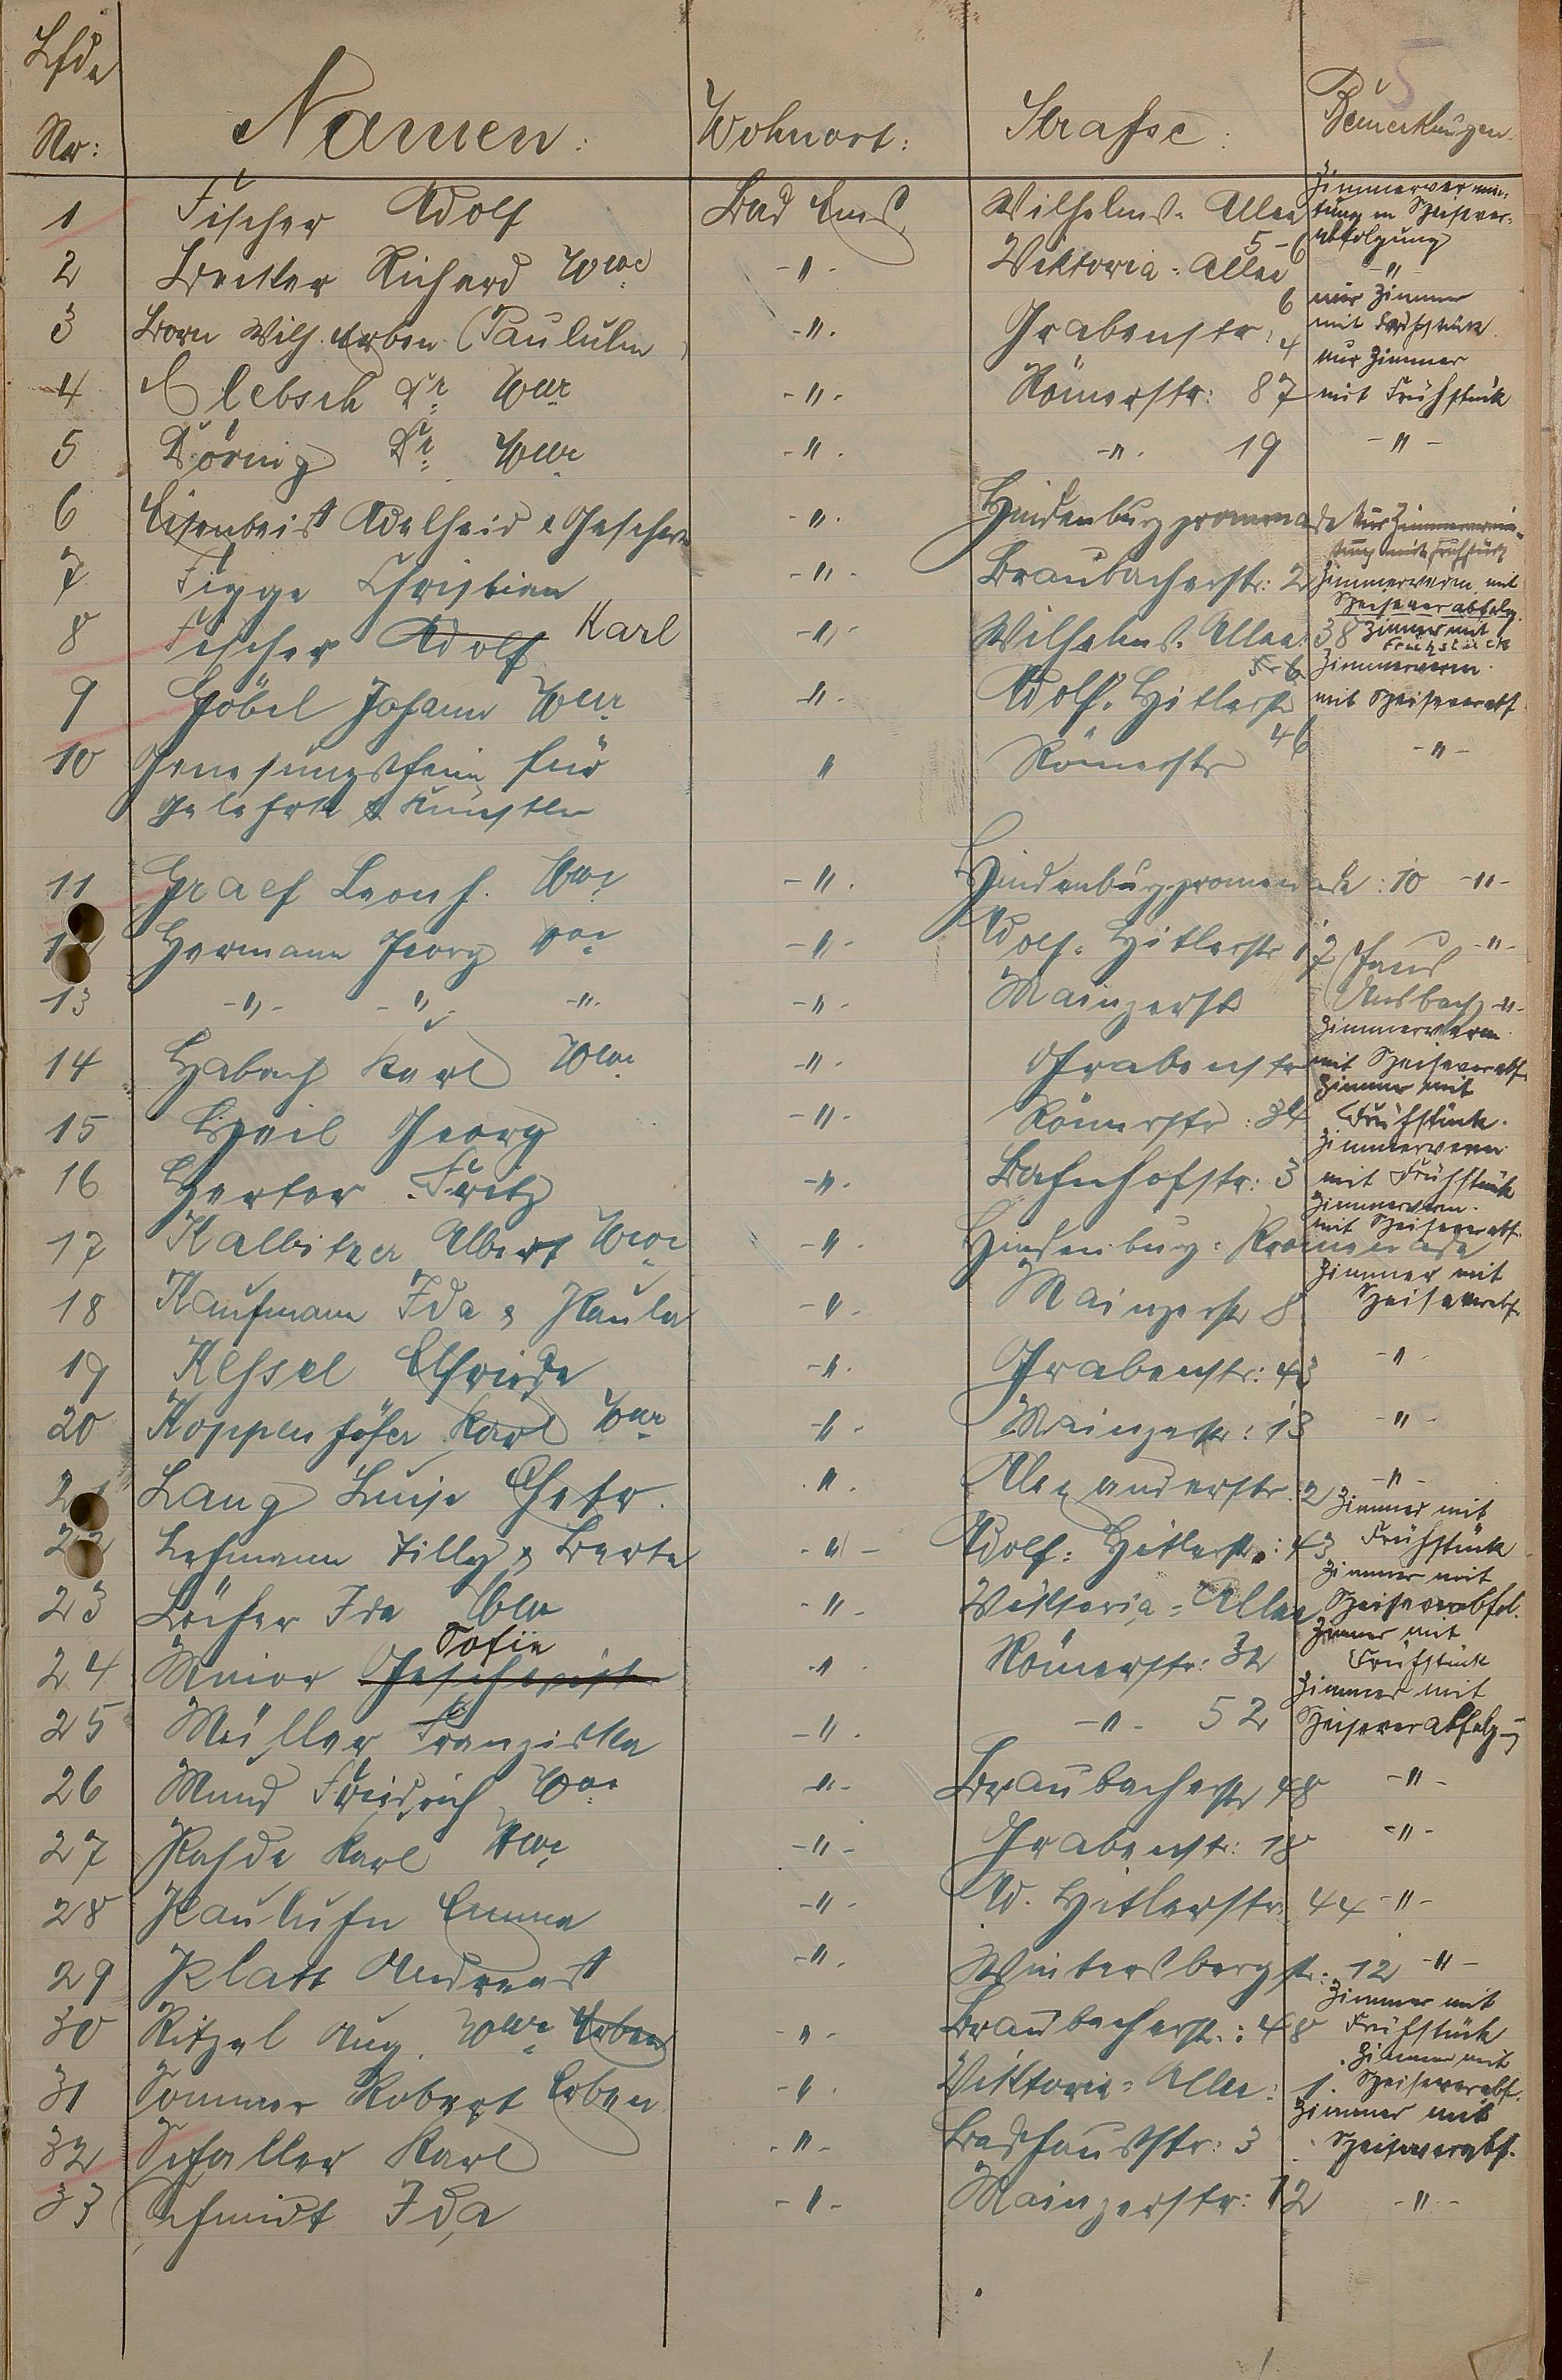 5
Lfde Nr: Namen: Wohnort: Strasse: Bemerkungen.
1 Fischer Adolf Bad Ems Wilhelms-Allee 5-6 Zimmervermie-
tung m Speisever-
abfolgung
2 Becker Richard Wwe -"- Viktoria-Allee 6 -"-
3 Born Wilh. Erben (Paululm) -"- Grabenstr: 4 nur Zimmer
mit Frühstück
4 Clebsch Dr. Wwe -"- Römerstr: 87 nur Zimmer
mit Frühstück
5 Döring Dr. Wwe -"- -"- 19 -"-
6 Eisenbeis Adelheid & Geschw -"- Hindenburgpromenade Nur Zimmervermie-
tung mit Frühstück
7 Figge Christian -"- Braubacherstr: 2 Zimmerverm mit
Speiseverabfolg.
8 Fischer Adolf Karl -"- Wilhelms-Allee: 5-6 38 Zimmer mit
Frühstück
9 Göbel Johann Wwe -"- Adolf-Hitlerstr 46 Zimmerverm.
mit Speiseverabf
10 Genesungsheim für " Römerstr -"-
Gelehrte & Künstler
11 Graef Leonh. Wwe -"- Hindenburgpromenade: 10 -"-
12 Hermann Georg Wwe -"- Adolf-Hitlerstr 17 -"-
13 -"- -"- -"- -"- Mainzerstr (Haus
Ansbach) -"-
14 Habach Karl Wwe -"- Grabenstr Zimmerverm.
mit Speiseverabf.
15 Heil Georg -"- Römerstr: 34 Zimmer mit
Frühstück.
16 Herter Fritz -"- Bahnhofstr: 3 Zimmerverm.
mit Frühstück
17 Kalbitzer Albert Wwe -"- Hindenburg-Promenade Zimmerverm.
mit Speiseverabf.
18 Kaufmann Ida & Paula -"- Mainzerstr 8 Zimmer mit
Speiseverabf.
19 Kessel Elfriede -"- Grabenstr: 43 -"-
20 Koppenhöfer Karl Wwe -"- Mainzerstr: 13 -"-
21 Lang Luise Ehefr. -"- Alexanderstr. 2 -"-
22 Lehmann Tilly & Berta -"- Adolf-Hitlerstr: 43 Zimmer mit
Frühstück
23 Löcher Ida Wwe -"- Viktoria-Allee Zimmer mit
Speiseverabfol.
24 Meior Geschwister Sofie -"- Römerstr: 32 Zimmer mit
Frühstück
25 Müller Franziska -"- -"- 52 Zimmer mit
Speiseverabfolg-g
26 Mund Friedrich Wwe -"- Braubacherstr 48 -"-
27 Pahde Karl Wwe -"- Grabenstr: 18 -"-
28 Pauluhn Emma -"- Ad. Hitlerstr. 44 -"-
29 Platt Andreas -"- Wintersbergstr: 12 -"-
30 Ritzel Aug. Wwe Erben -"- Braubacherstr.: 48 Zimmer mit
Frühstück
31 Sommer Robert Erben -"- Viktoria-Allee: 1. Zimmer mit
Speiseverabf.
32 Schaller Karl -"- Badhausstr: 3 Zimmer mit
Speiseverabf.
33 Schmidt Ida -"- Mainzerstr: 12 -"-